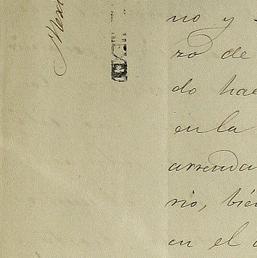 no y
zo de
do hac
en la
arrenda
rio, bien
en el